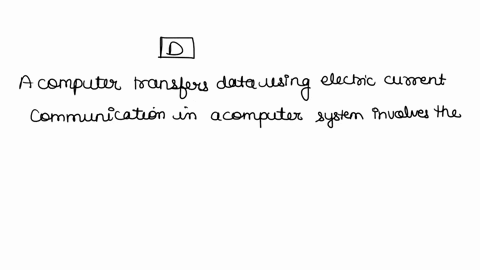 D
A computer transfers data using electric current
Communication in a computer system involves the